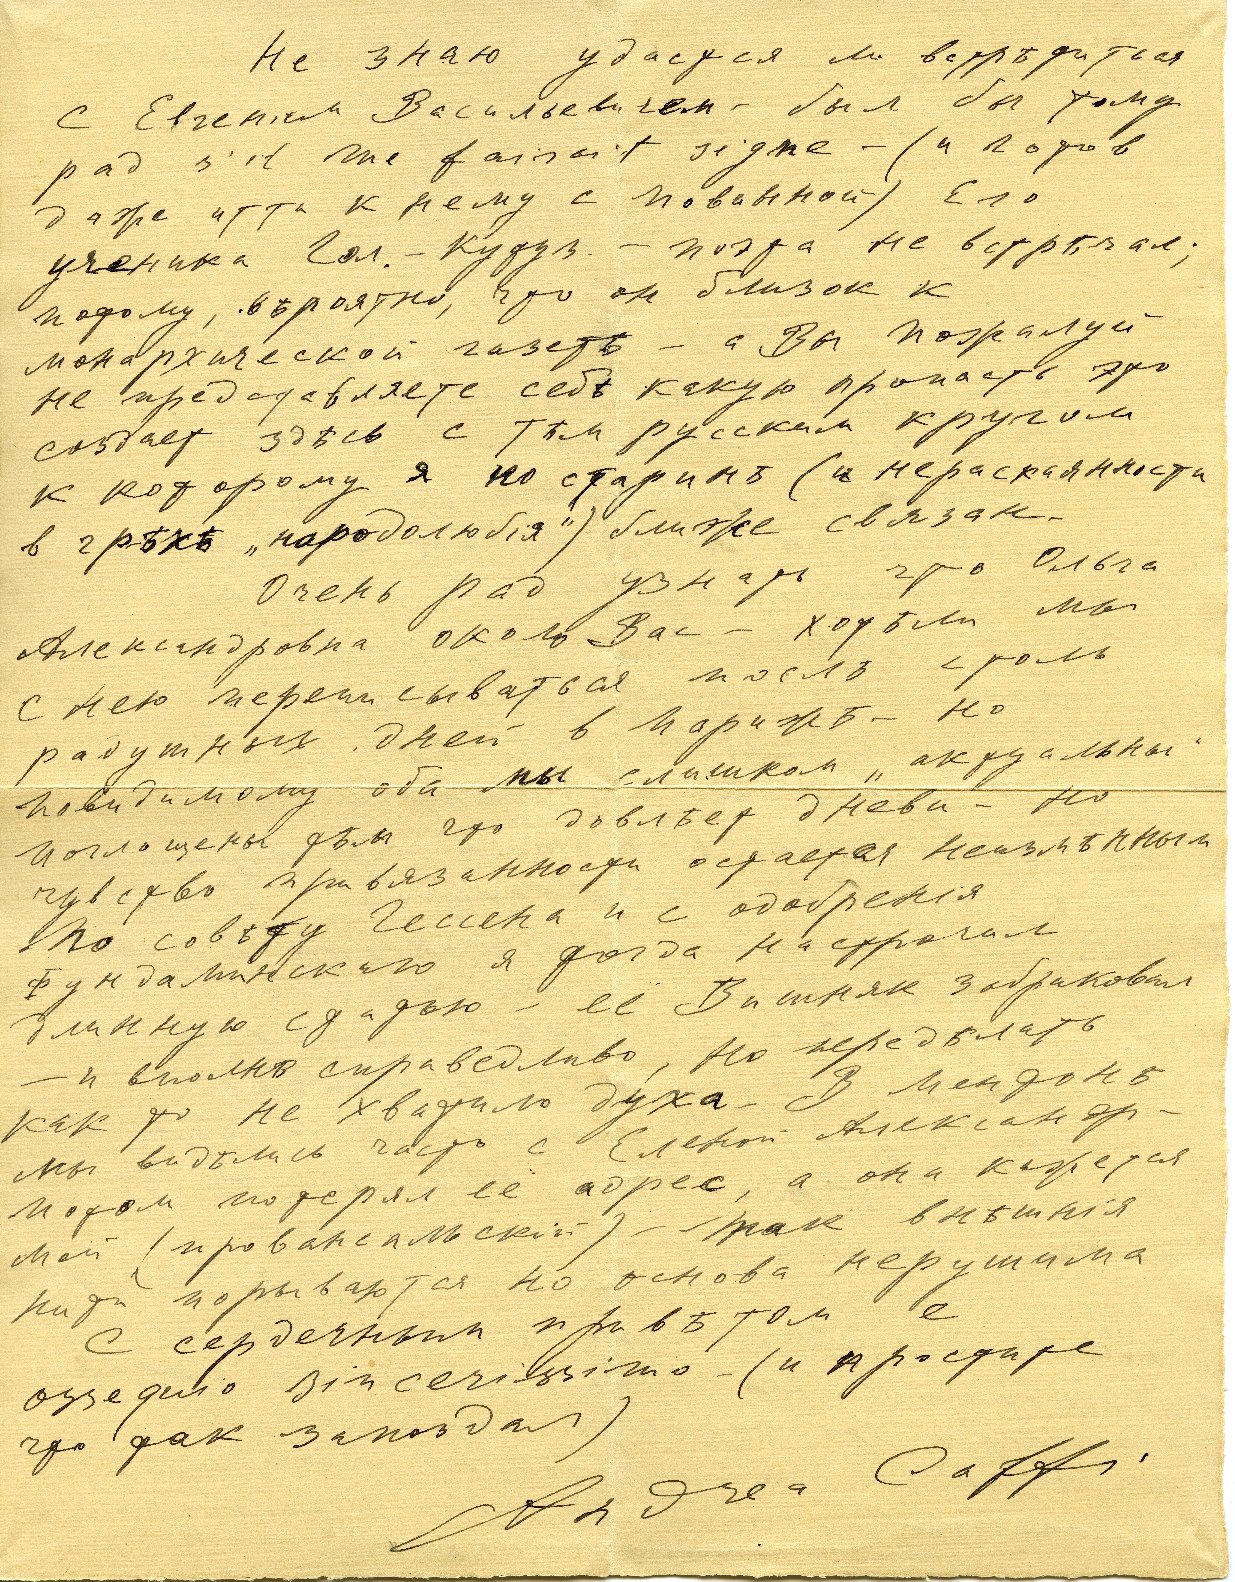 Не знаю удастся ли встрѣтиться
с Евгеніем Васильевичем – был бы тому
рад s'il me faisait signe – (и готов
даже итти к нему с повинной) Его
ученика Гол.-Кутуз. – поэта не встрѣчал;
потому, вѣроятно, что он близок к
монархической газетѣ – а Вы пожалуй
не представляете себѣ какую пропасть это
создает здѣсь с тѣм русским кругом
к которому я по старинѣ (и нераскаянности
в грѣхѣ „народолюбія“) ближе связан –
Очень рад узнать что Ольга
Александровна около Вас – хотѣли мы
с нею переписываться послѣ столь
радушных дней в Парижѣ – но
повидимому оба мы слишком „актуальны“
поглощены тѣм что довлѣет дневи – но
чувство привязанности остается неизмѣнным
По совѣту Гессена и с одобренія
Фундаминскаго я тогда настрочил
длинную статью – её Вишняк забраковал
– и вполнѣ справедливо, но передѣлать
как то не хватило духа – В Мендонѣ
мы видѣлись часто с Еленой Александр –
потом потерял её адрес, а она кажется
мой (провансальскій) – так внѣшнія
нити порываются но основа нерушима
С сердечным привѣтом е
ossequio sincerissimo – (и простите
что так запоздал)
Andrea Caffi